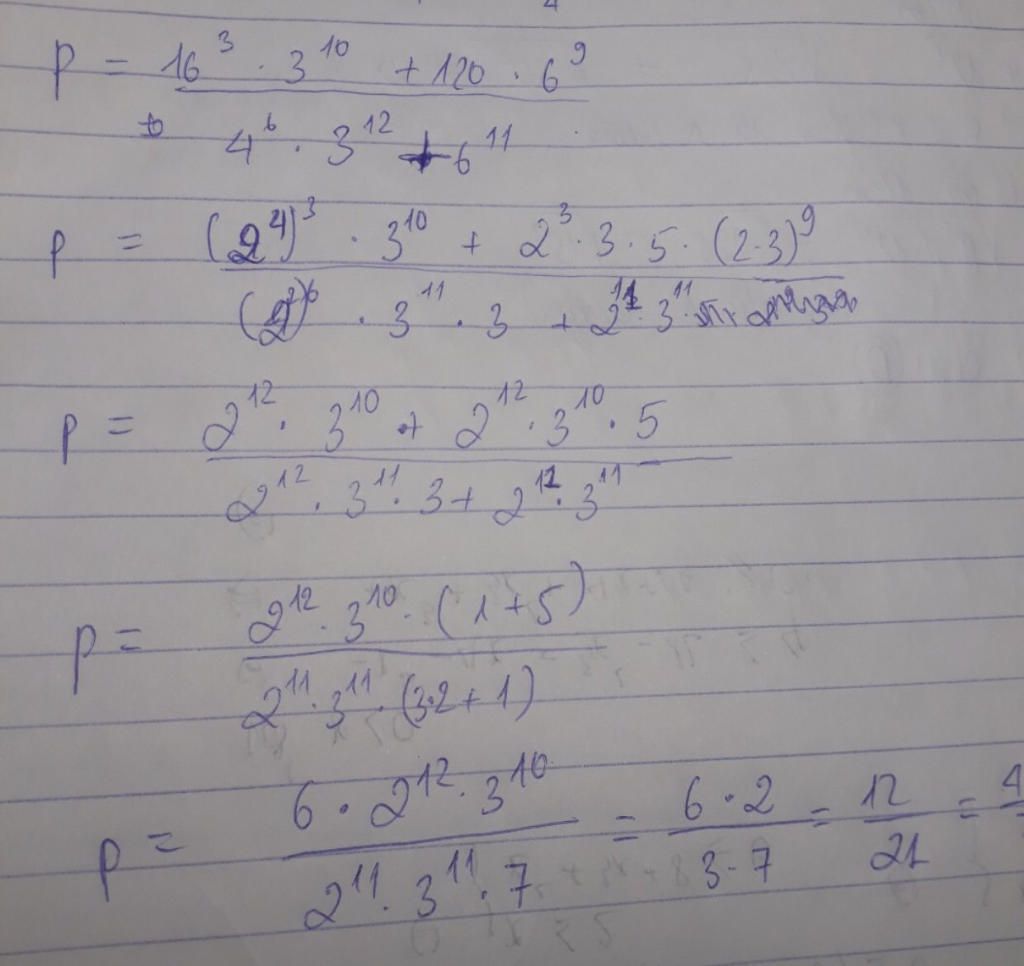 P = 16^3 · 3^10 + 120 · 6^9
4^6 · 3^12 + 6^11
P = (2^4)^3 · 3^10 + 2^3 · 3 · 5 · (2·3)^9
(2^2)^6 · 3^11 · 3 + 2^11 · 3^11
P = 2^12 · 3^10 + 2^12 · 3^10 · 5
2^12 · 3^11 · 3 + 2^11 · 3^11
P = 2^12 · 3^10 · (1 + 5)
2^11 · 3^11 · (3·2 + 1)
P = 6 · 2^12 · 3^10 = 6 · 2 = 12 = 4
2^11 · 3^11 · 7 3 · 7 21